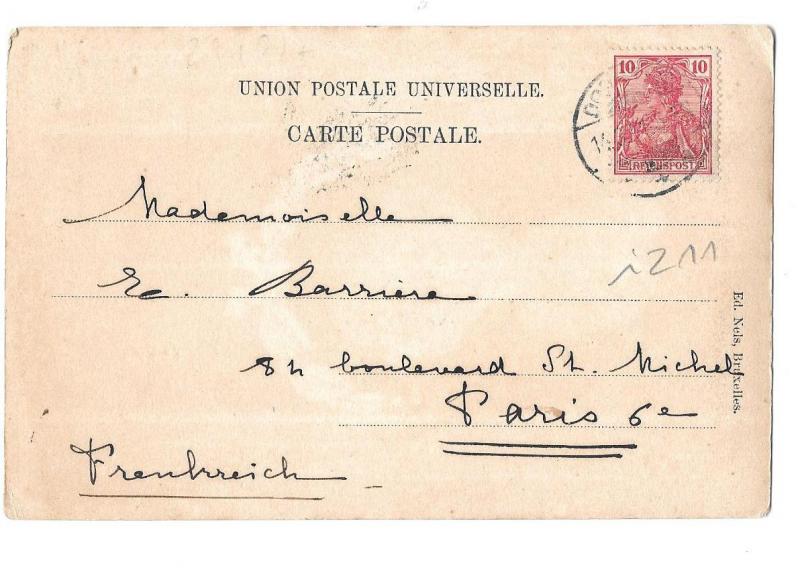 UNION POSTALE UNIVERSELLE.
CARTE POSTALE.
10 10
REICHSPOST
Mademoiselle
E. Barrière
boulevard St. Michel
Paris 6e
Frenkreich
Ed. Nels, Bruxelles.